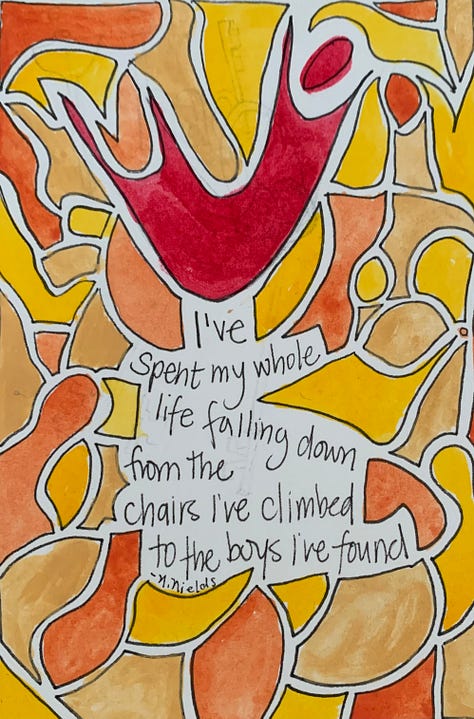 I've
spent my whole
life falling down
from the
chairs I've climbed
to the boys I've found
-N. Nields